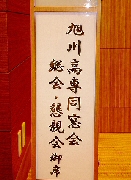 旭川高専同窓会
総会・懇親会御席